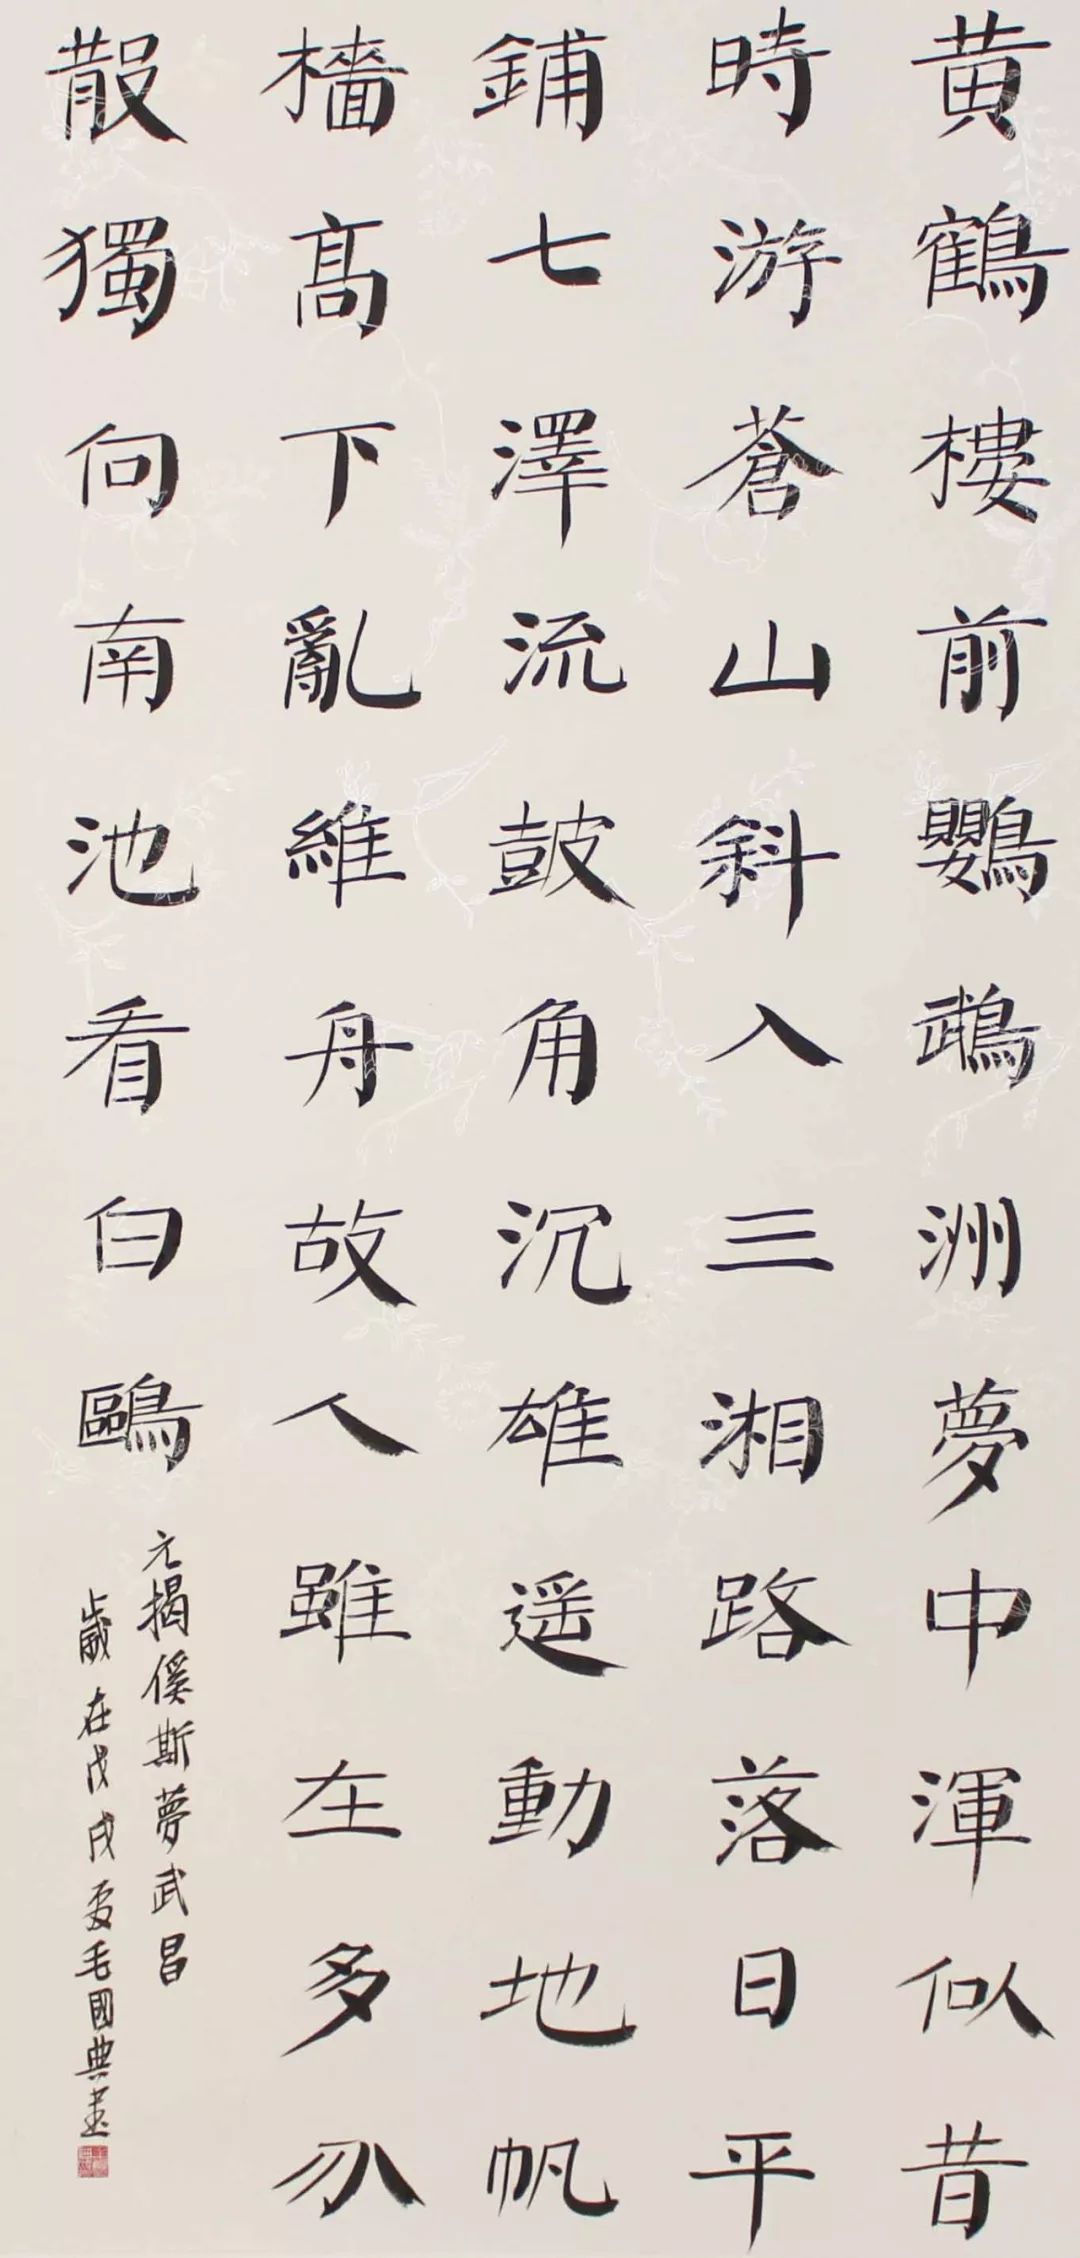 黄鶴樓前鸚鵡洲夢中渾似昔
時游蒼山斜入三湘路落日平
鋪七澤流鼓角沉雄遥動地帆
檣髙下亂維舟故人雖在多分
散獨向南池看白鷗
元揭傒斯夢武昌
歲在戊戌夏毛國典書